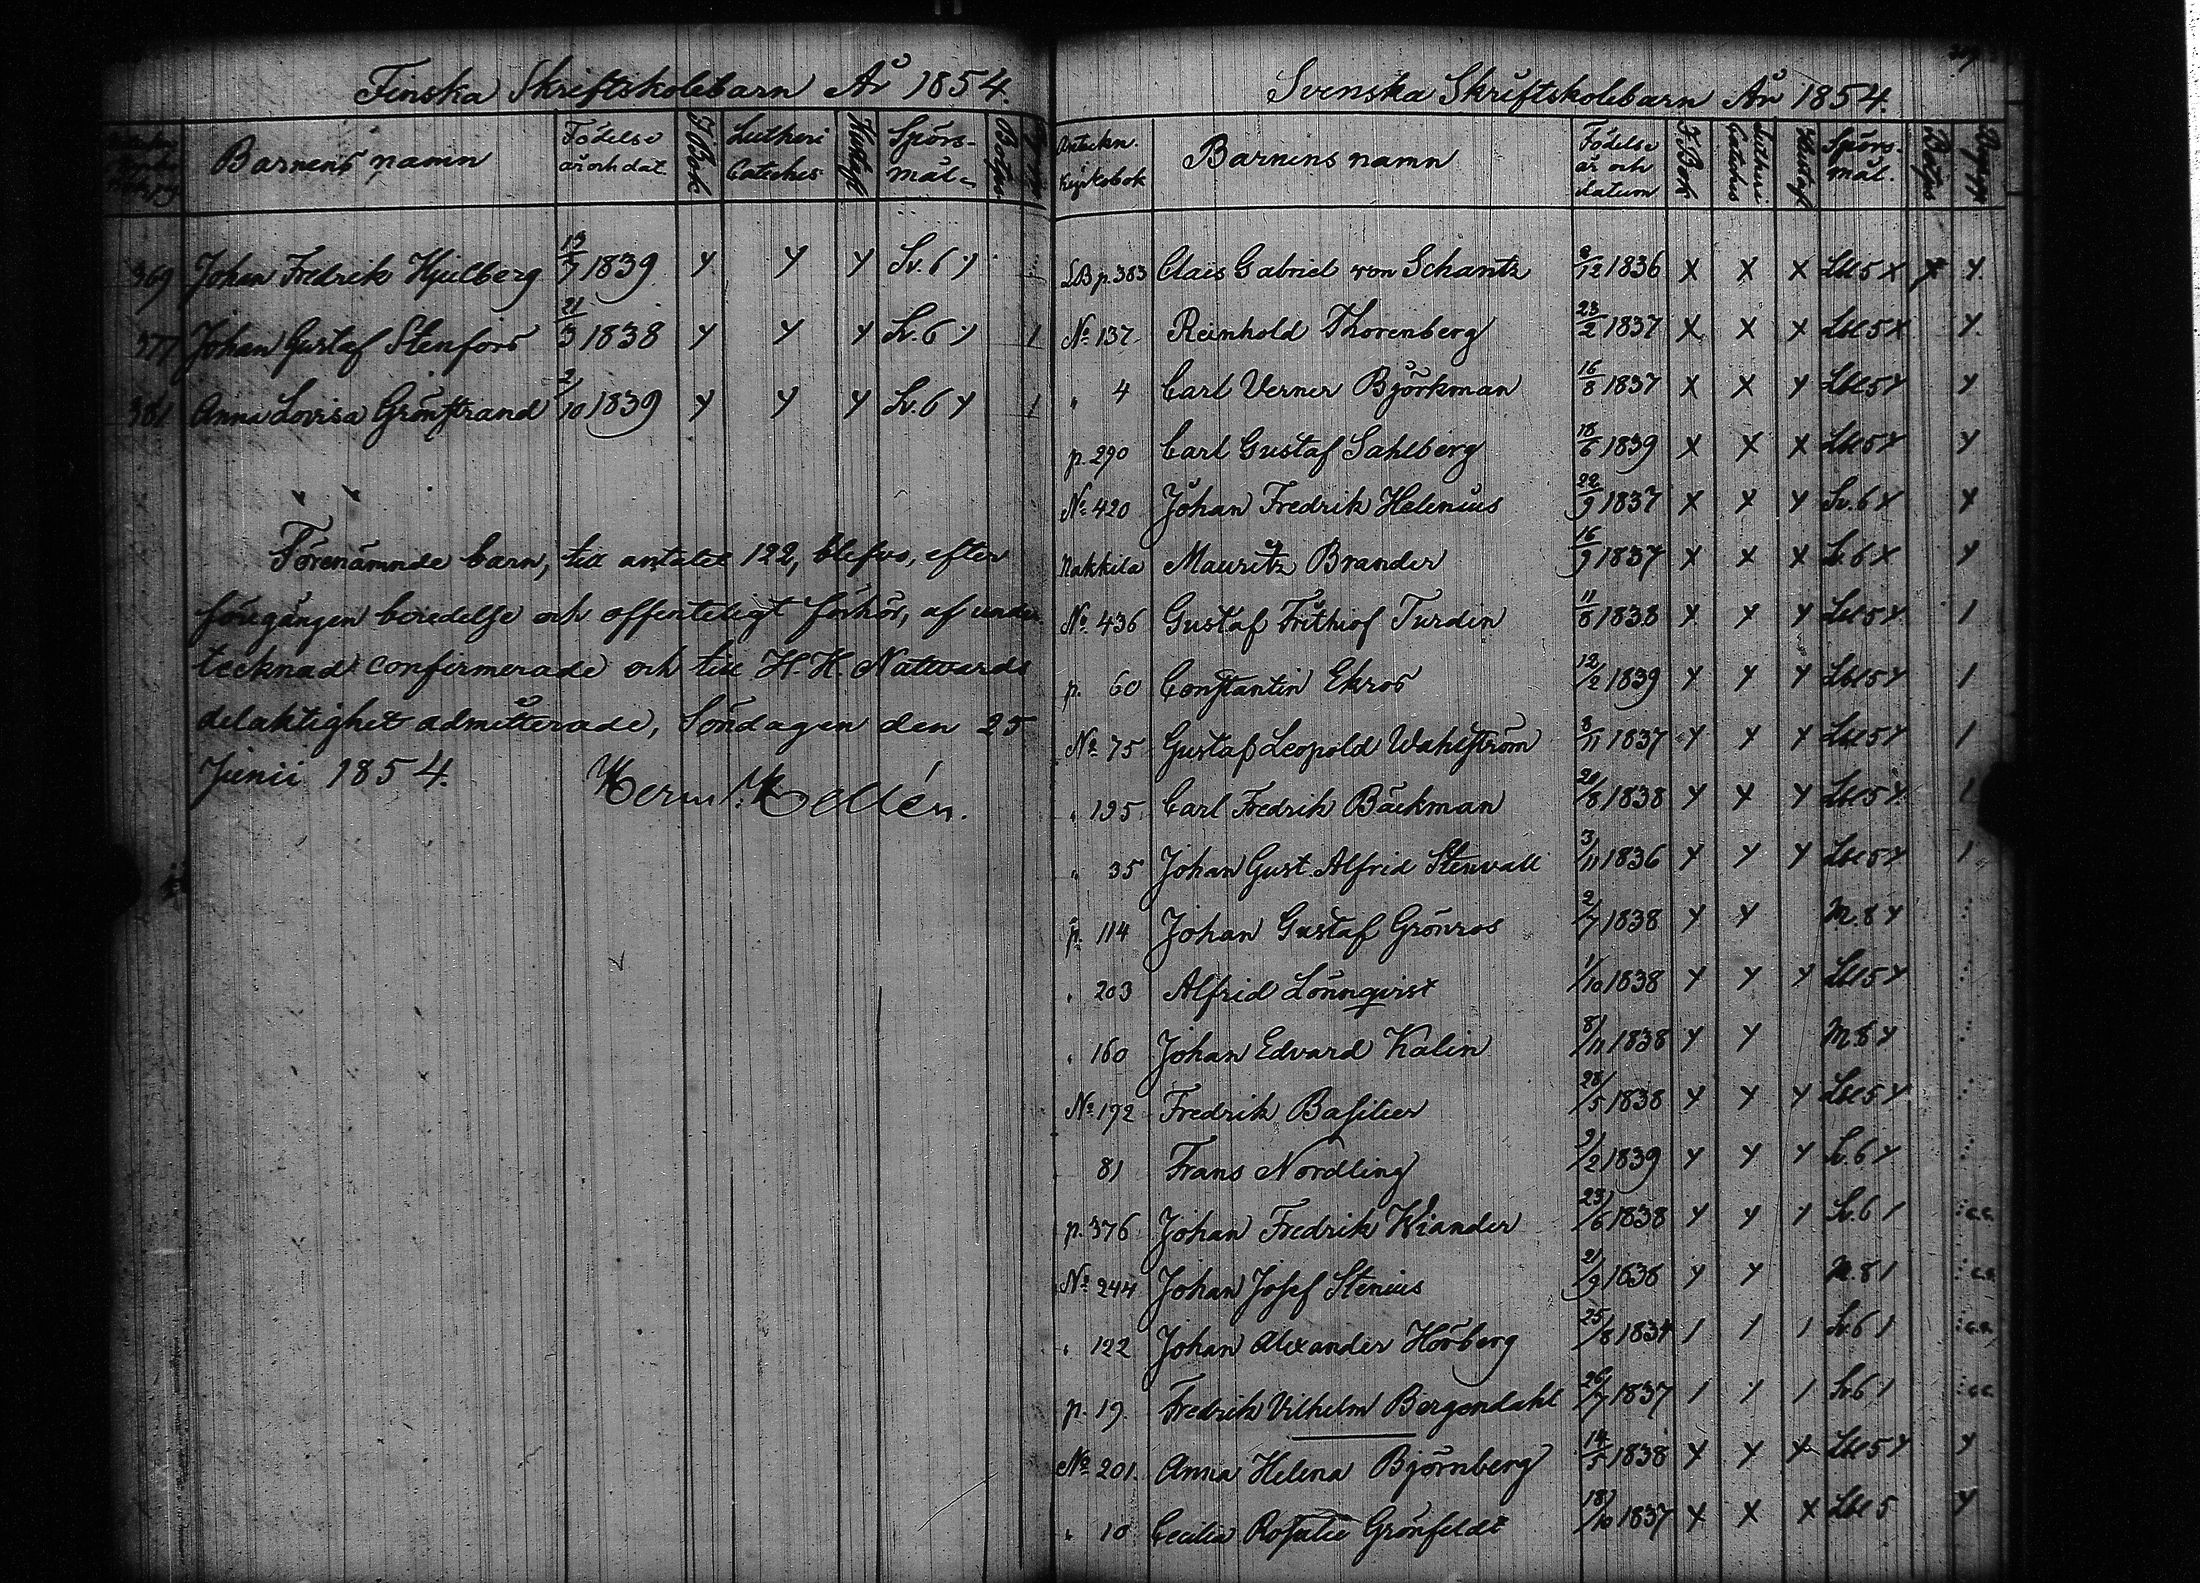 Finska Skriftskolebarn År 1854.
Barnens namn Födelse år och dat I Bok Lutheri Cateches Hustafl Spörs-mål Botps
369 Johan Fredrik Hjulberg 13/7 1839 y y y Sv. 6 y
377 Johan Gustaf Stenfors 21/3 1838 y y y Sv. 6 y 1
381 Anna Lovisa Grönstrand 2/10 1839 y y y Sv. 6 y 1
Förenämnde barn, till antalet 122, blefvo, efter
föregången beredelse och offenteligt förhör, af under
tecknad confirmerade och till H. H. Nattvards
delaktighet admitterade, Söndagen den 25
Junii 1854. Herm. Hellén.
Svenska Skriftskolebarn År 1854.
Anteckn. Kyrkobok Barnens namn Födelse år och datum I Bok Lutheri Cateches Hustafl Spörs-mål. Botps
LB p. 383 Claes Gabriel von Schantz 9/12 1836 x x x Lbl 5 x x y.
No 137 Reinhold Thorenberg 23/2 1837 x x x Lbl 5 x y.
" 4 Carl Verner Björkman 16/8 1837 x x y Lbl 5 y y
p. 290 Carl Gustaf Sahlberg 18/6 1839 x x x Lbl 5 y y
No 420 Johan Fredrik Helenius 22/9 1837 x x y Sv. 6 y y
Nakkila Mauritz Brander 16/9 1837 x x x Sv. 6 x y
No 436 Gustaf Frithiof Turdin 11/8 1838 x y y Lbl 5 y 1
p. 60 Constantin Ekros 12/2 1839 y y y Lbl 5 y 1
No 75 Gustaf Leopold Wahlström 8/11 1837 y y y Lbl 5 y 1
" 195 Carl Fredrik Bäckman 20/8 1838 y y y Lbl 5 y 1
" 35 Johan Gust. Alfrid Stenvall 3/11 1836 y y y Lbl 5 y 1
p. 114 Johan Gustaf Grönros 2/7 1838 y y M. 8 y
" 203 Alfrid Lönnqvist 1/10 1838 y y y Lbl 5 y
" 160 Johan Edvard Kalin 8/11 1838 y y M 8 y
No 192 Fredrik Basilier 28/5 1838 y y y Lbl 5 y
81 Frans Nordling 9/2 1839 y y y Sv. 6 y
p. 376 Johan Fredrik Wiander 23/6 1838 y y y Sv. 6 1
No 244 Johan Josef Stenius 21/9 1838 y y M. 8 1
" 122 Johan Alexander Hörberg 25/8 1837 1 1 1 Sv. 6 1
p. 19. Fredrik Vilhelm Bergendahl 26/7 1837 1 y 1 Sv. 6 1
No 201. Anna Helena Björnberg 1838 y y x Lbl 5 y y
" 10 Cecilia Rosalie Grönfeldt 18/10 1837 x x x Lbl 5 y